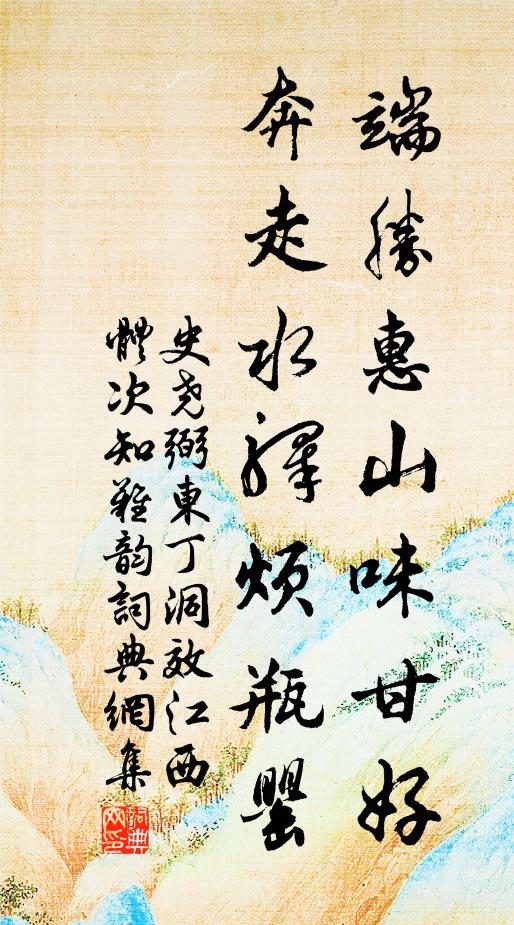 端勝惠山味甘好
奔走水驛煩瓶罌
史尧弼東丁洞效江西
體次知難韵詞典網集
詞典網印